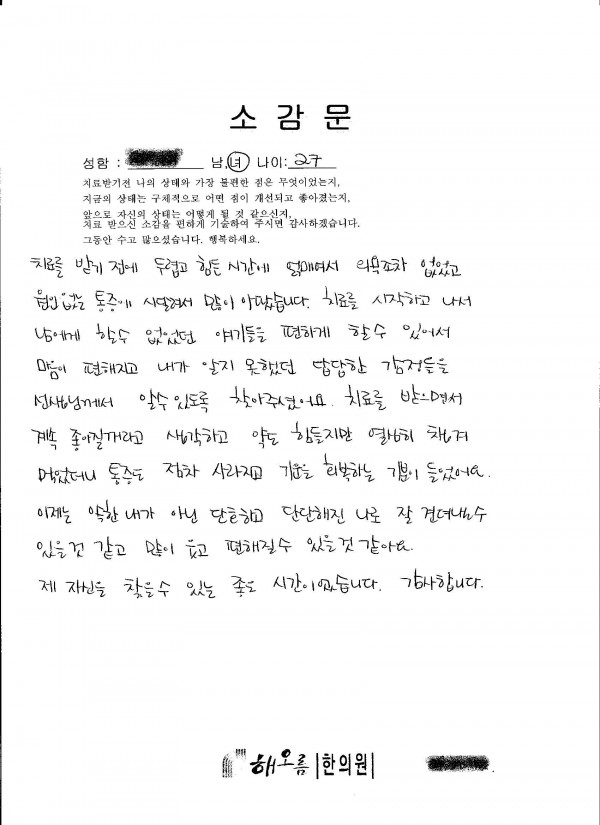 소 감 문
성함 : 남,녀 나이: 27
치료받기전 나의 상태와 가장 불편한 점은 무엇이었는지,
지금의 상태는 구체적으로 어떤 점이 개선되고 좋아졌는지,
앞으로 자신의 상태는 어떻게 될 것 같으신지,
치료 받으신 소감을 편하게 기술하여 주시면 감사하겠습니다.
그동안 수고 많으셨습니다. 행복하세요.
치료를 받기 전에 두렵고 힘든 시간에 얽매여서 의욕조차 없었고
원인 없는 통증에 시달려서 많이 아팠습니다. 치료를 시작하고 나서
남에게 할수 없었던 얘기들을 편하게 할수 있어서
마음이 편해지고 내가 알지 못했던 답답한 감정들을
선생님께서 알수 있도록 찾아주셨어요. 치료를 받으면서
계속 좋아질거라고 생각하고 약도 힘들지만 열심히 챙겨
먹었더니 통증도 점차 사라지고 기운을 회복하는 기분이 들었어요.
이제는 약한 내가 아닌 단호하고 단단해진 나로 잘 견뎌내수
있을것 같고 많이 웃고 편해질수 있을것 같아요.
제 자신을 찾을수 있는 좋은 시간이었습니다. 감사합니다.
해오름 |한의원|